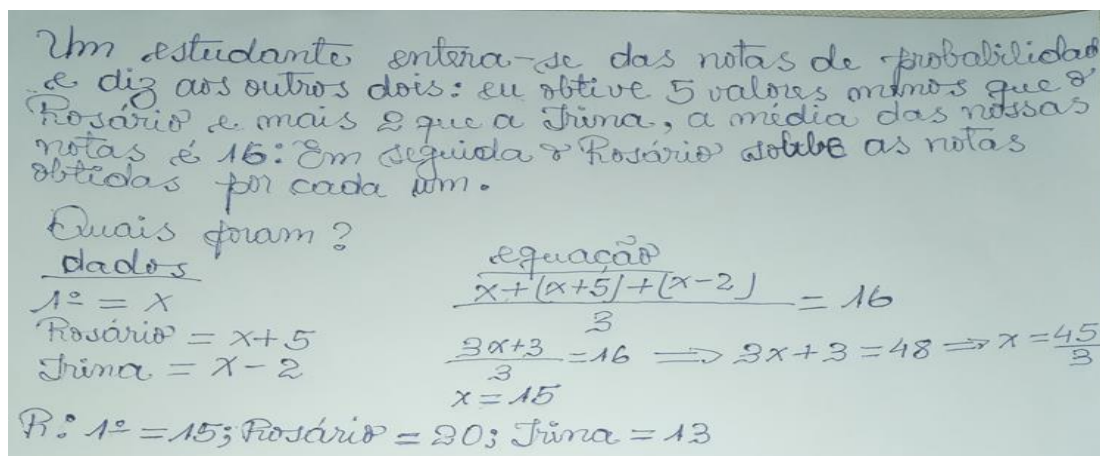 Um estudante entera-se das notas de probabilidad
e diz aos outros dois: eu obtive 5 valores menos que o
Rosário e mais 2 que a Irina, a média das nossas
notas é 16: Em seguida o Rosário soube as notas
obtidas por cada um.
Quais foram?
dados
1º = x
Rosário = x+5
Irina = x-2
equação
x+(x+5)+(x-2) / 3 = 16
3x+3 / 3 = 16 ⟹ 3x+3=48 ⟹ x=45/3
x=15
R: 1º=15; Rosário=20; Irina=13